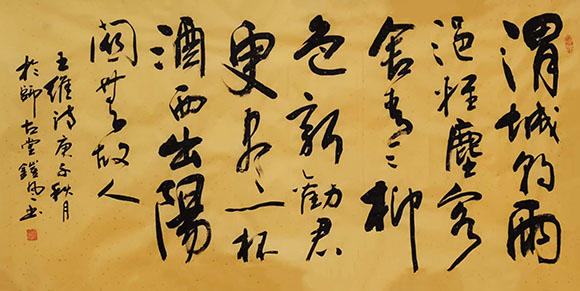 渭城朝雨
浥輕塵客
舍青々柳
色新勸君
更尽一杯
酒西出陽
關無故人
王維詩庚子秋月
於師古堂书